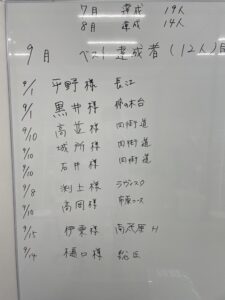 7月 達成 19人
8月 達成 14人
9月 ベスト達成者(12人)目
9/1 平野様 長江
9/1 黒井様 柳の木台
9/10 高蓋様 四街道
9/10 城所様 四街道
9/10 石井様 四街道
9/8 渕上様
9/10 高岡様 市原コース
9/15 伊東様 南茂原H
9/14 樋口様 総丘